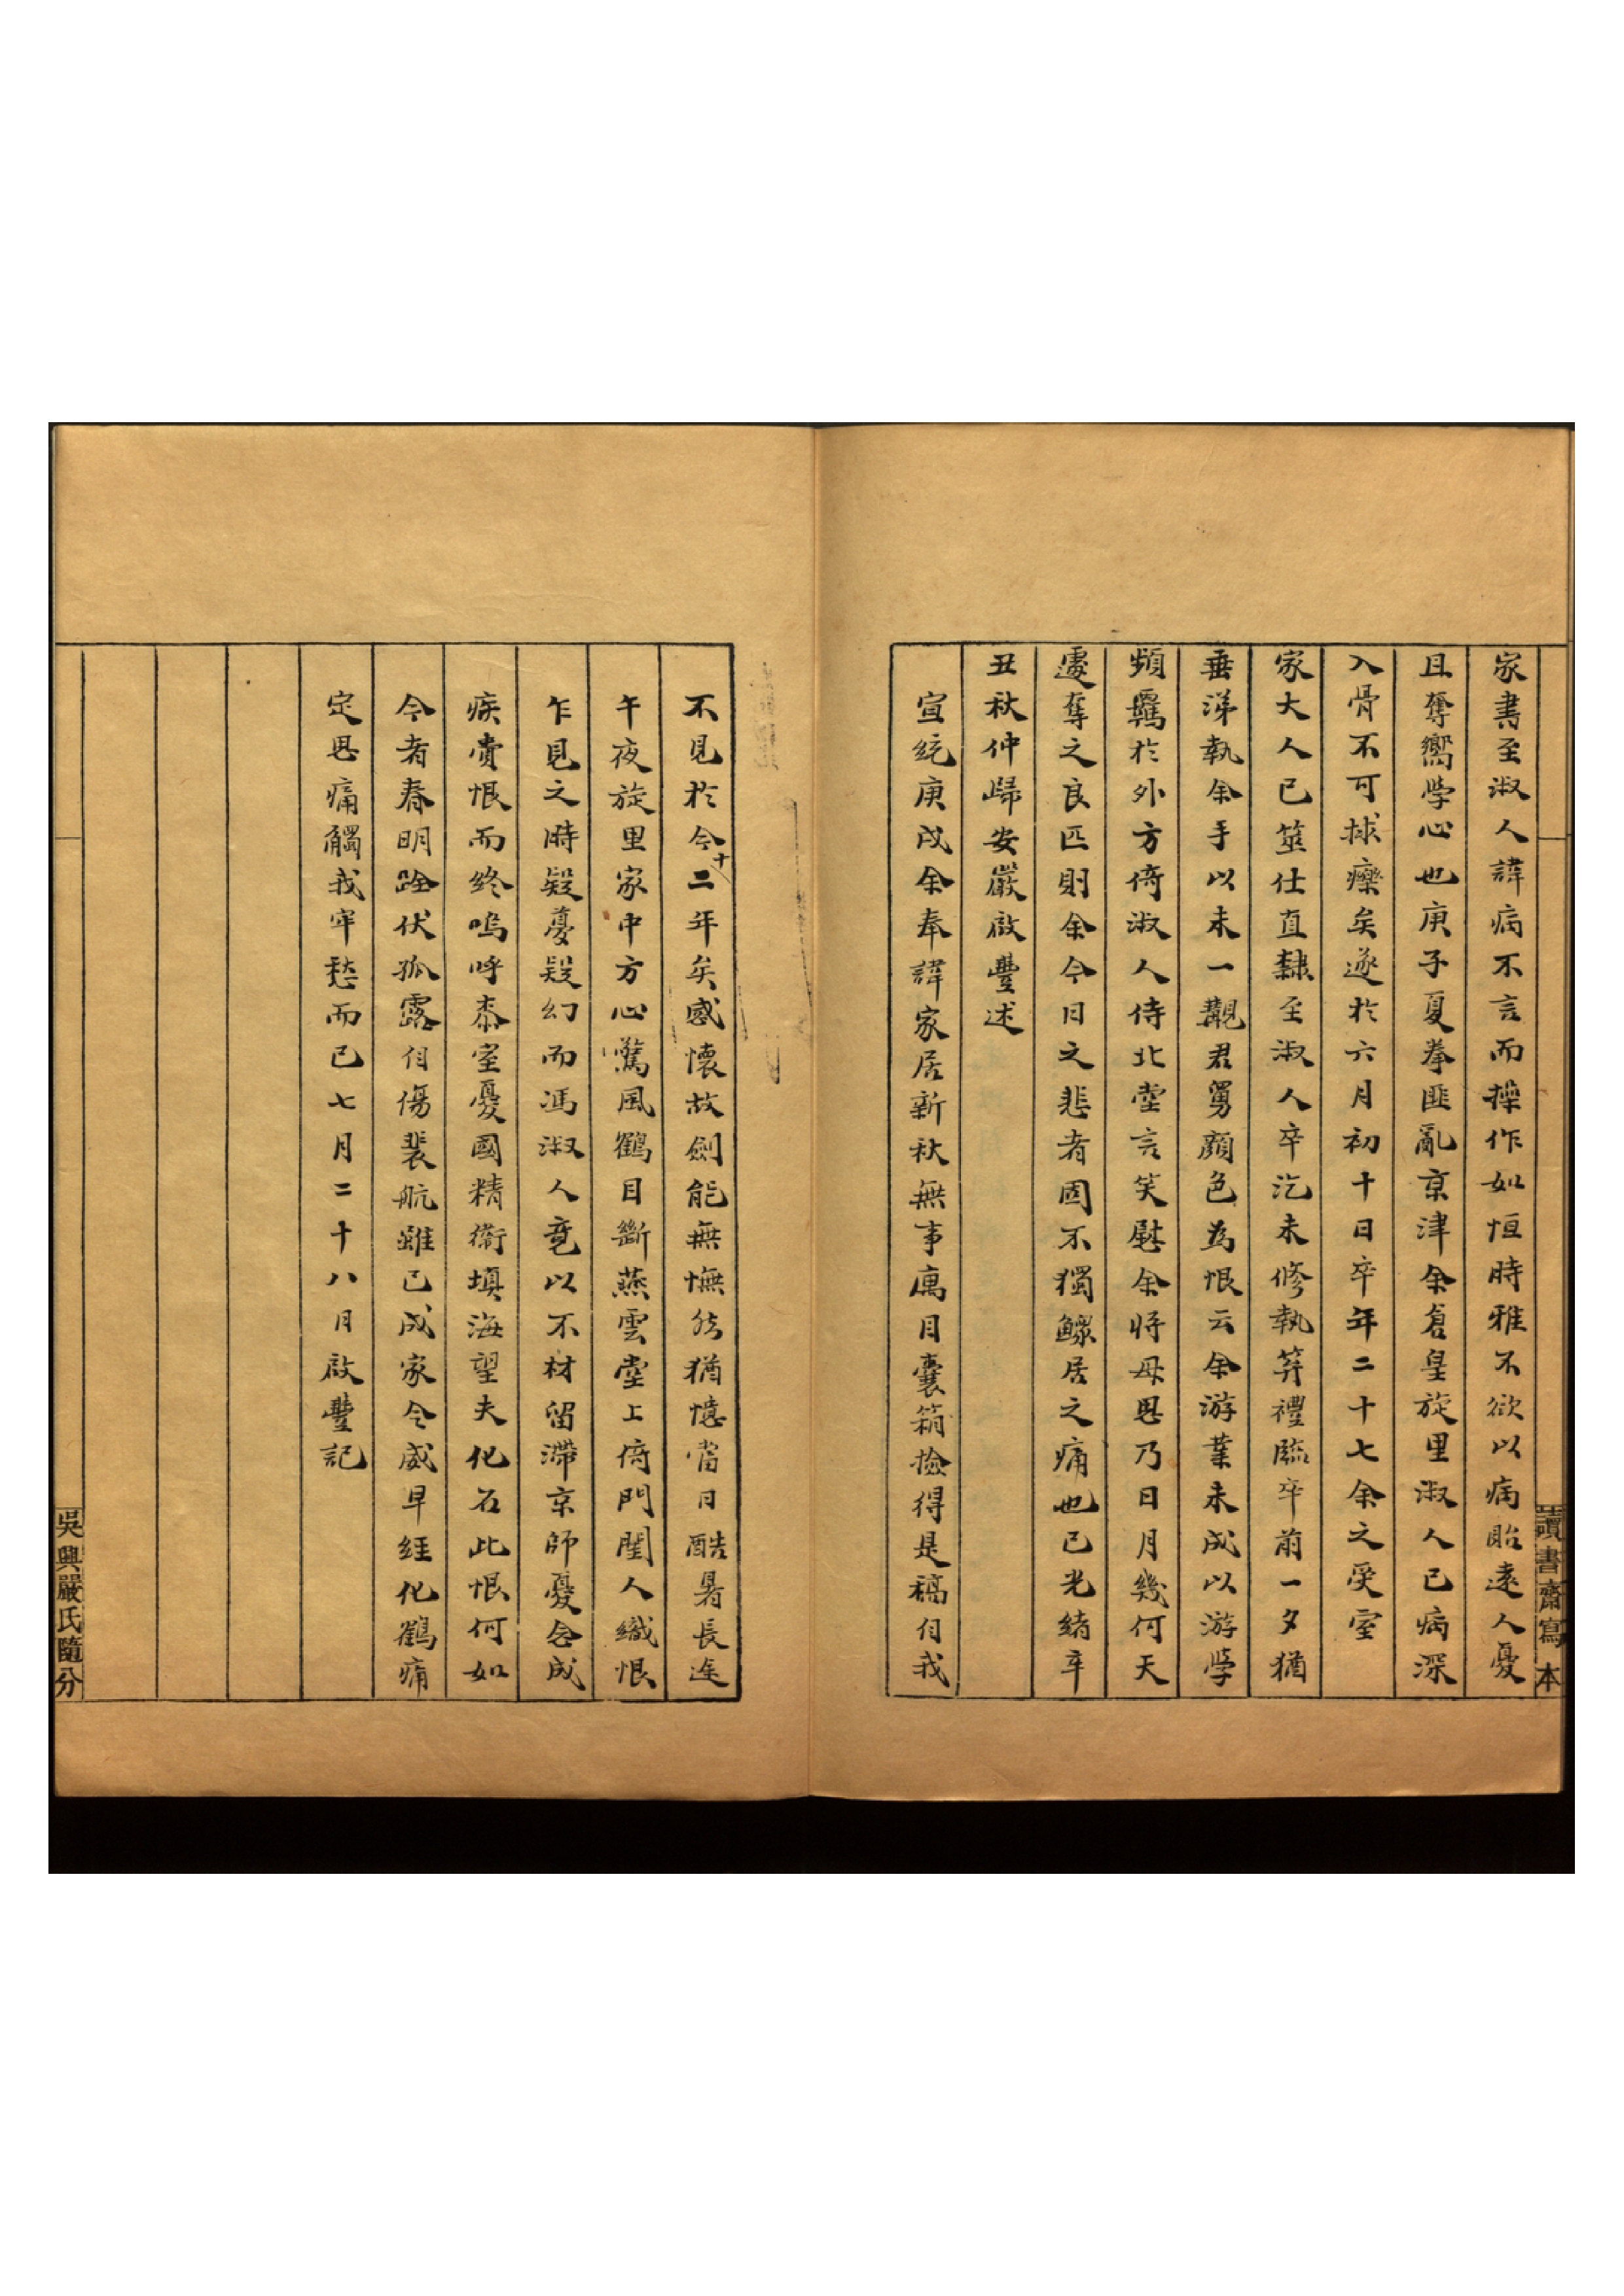 家書至淑人諱病不言而操作如恒時雅不欲以病貽遠人憂
且奪嚮學心也庚子夏拳匪亂京津余倉皇旋里淑人已病深
入骨不可捄藥矣遂於六月初十日卒年二十七余之受室
家大人已筮仕直隸至淑人卒迄未修執笲禮臨卒前一夕猶
垂涕執余手以未一覯君舅顏色為恨云余游業未成以游學
頻羈於外方倚淑人侍北堂言笑慰余將母思乃日月幾何天
遽奪之良匹則余今日之悲者固不獨鰥居之痛也已光緒辛
丑秋仲歸安嚴啟豐述
宣統庚戌余奉諱家居新秋無事寓目囊箱撿得是稿自我
不見於今十二年矣感懷故劍能無憮然猶憶當日酷暑長途
午夜旋里家中方心驚風鶴目斷燕雲堂上倚門閨人織恨
乍見之時疑夢疑幻而馮淑人竟以不材留滯京師憂念成
疾賫恨而終嗚呼柰室憂國精衛填海望夫化石此恨何如
今者春明跧伏孤露自傷裴航雖已成家令威早經化鶴痛
定思痛觸我牢愁而已七月二十八月啟豐記
讀書齋寫本
吳興嚴氏隨分